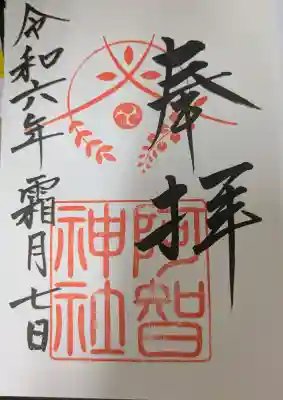 奉拝
阿智神社
令和六年 霜月 七日